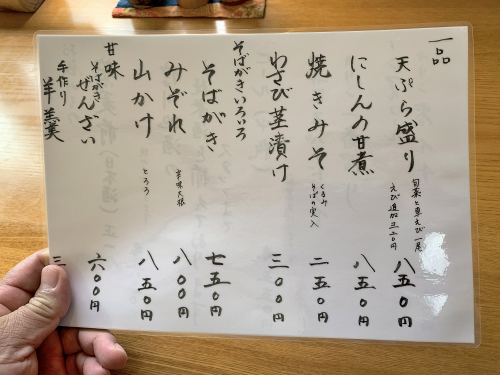 一品
天ぷら盛り 旬菜と車えび一尾 八五〇円
えび追加三二〇円
にしんの甘煮 八五〇円
焼きみそ くるみ そばの実入 二五〇円
わさび茎漬け 三〇〇円
そばがきいろいろ
そばがき 七五〇円
みぞれ 辛味大根 八〇〇円
山かけ とろろ 八五〇円
甘味
そばがきぜんざい 六〇〇円
手作り羊羹 三